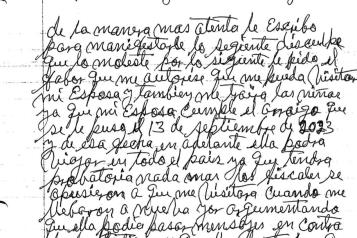 de la manera mas atenta le Escribo
para manifestarle lo segiente disculpe
que lo moleste por lo siguiente le pido el
fabor que me autorise que me pueda Visitar
mi Esposa y tambien me traiga las niñas
ya que mi Esposa cumple el arraigo que
se le puso el 13 de septiembre de 2023
y de esa fecha en adelante ella podra
viajar en todo el pais ya que tendra
probatoria nada mas los fiscales se
opusieron a que me Visitara cuando me
llebaron a nueva yor argumentando
que ella podia pasar mensajes en contra